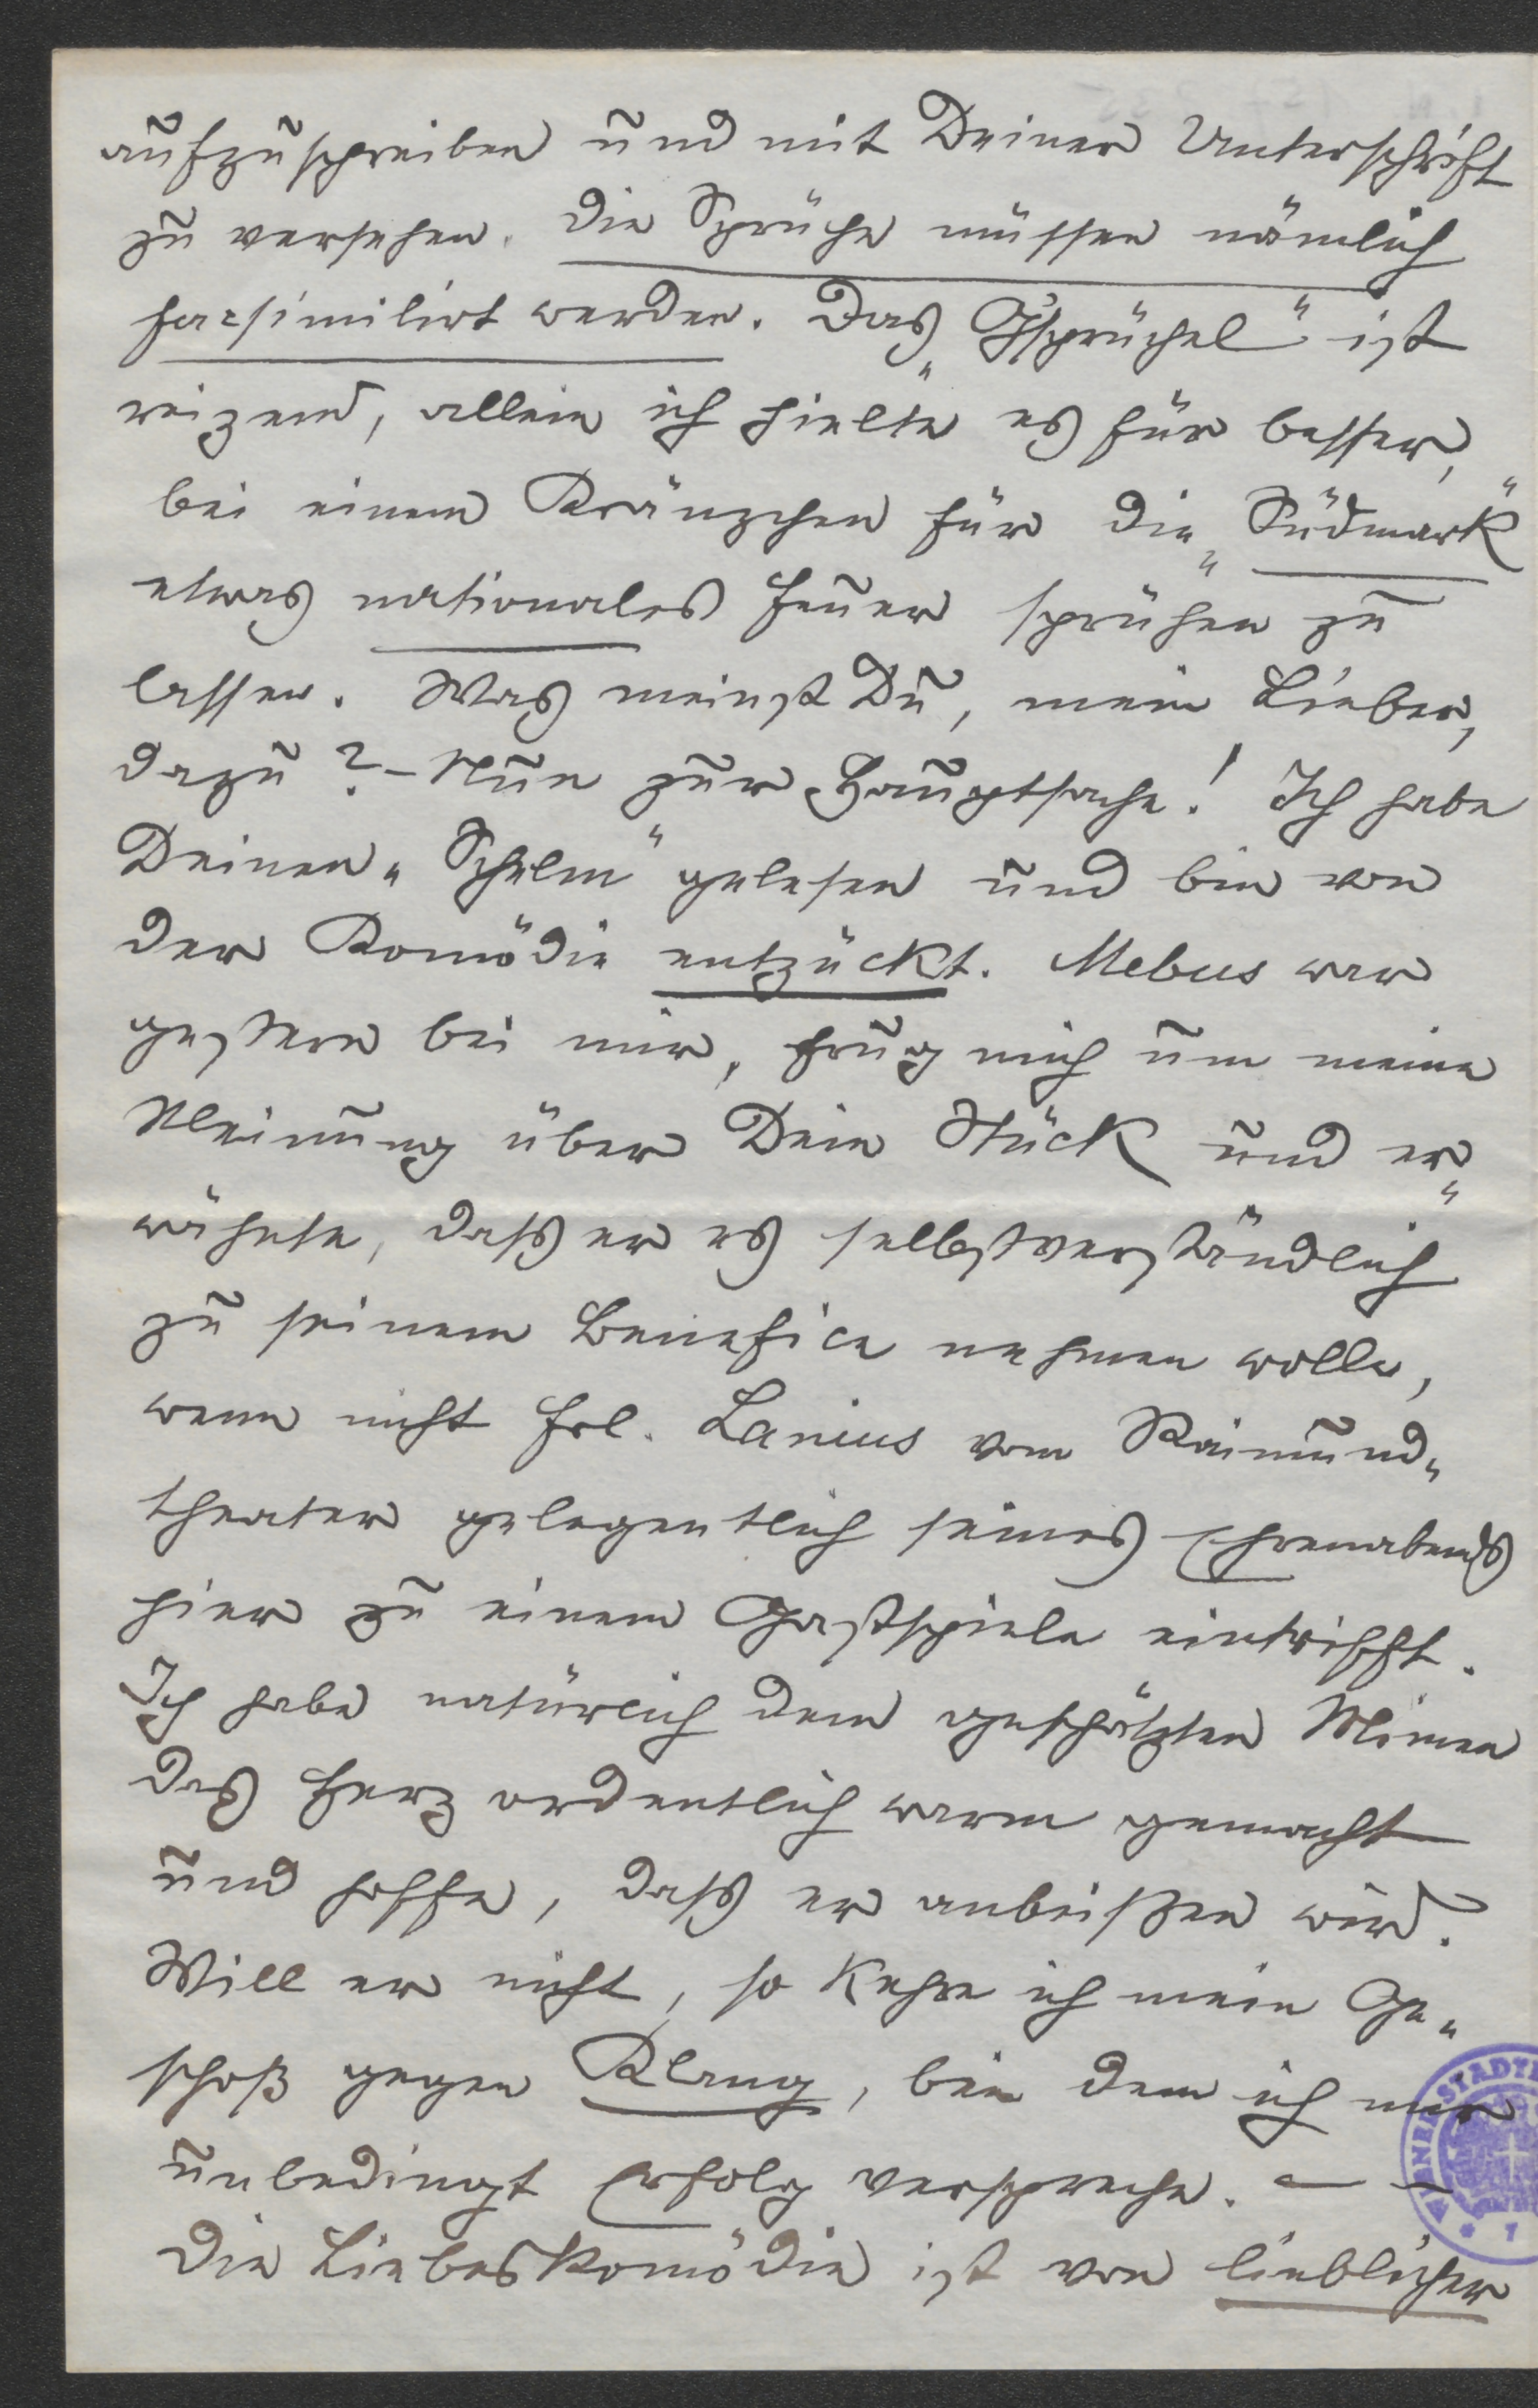 aufzuschreiben und mit Deiner Unterschrift
zu versehen. Die Sprüche müssen nämlich
facsimilirt werden. Das „Gsprüchel“ ist
reizend, allein ich hielte es für besser,
bei einem Kränzchen für die „Südmark“
etwas nationales Feuer sprühen zu
lassen. Was meinst Du, mein Lieber,
dazu? – Nun zur Hauptsache! Ich habe
Deinen „Schelm“ gelesen und bin von
der Komödie entzückt. Mebus war
gestern bei mir, frug mich um meine
Meinung über Dein Stück und er„
wähnte, daß er es selbstverständlich
zu seinem Benefice nehmen wolle,
wenn nicht Frl. Lanius vom Raimund„
theater gelegentlich seines Ehrenabends
hier zu einem Gastspiele eintrifft.
Ich habe natürlich dem geschätzten Mimen
das Herz ordentlich warm gemacht
und hoffe, daß er anbeißen wird.
Will er nicht, so kehre ich mein Ge„
schoß gegen Klang, bei dem ich mir
unbedingt Erfolg verspreche. — —
Die Liebeskomödie ist von lieblicher